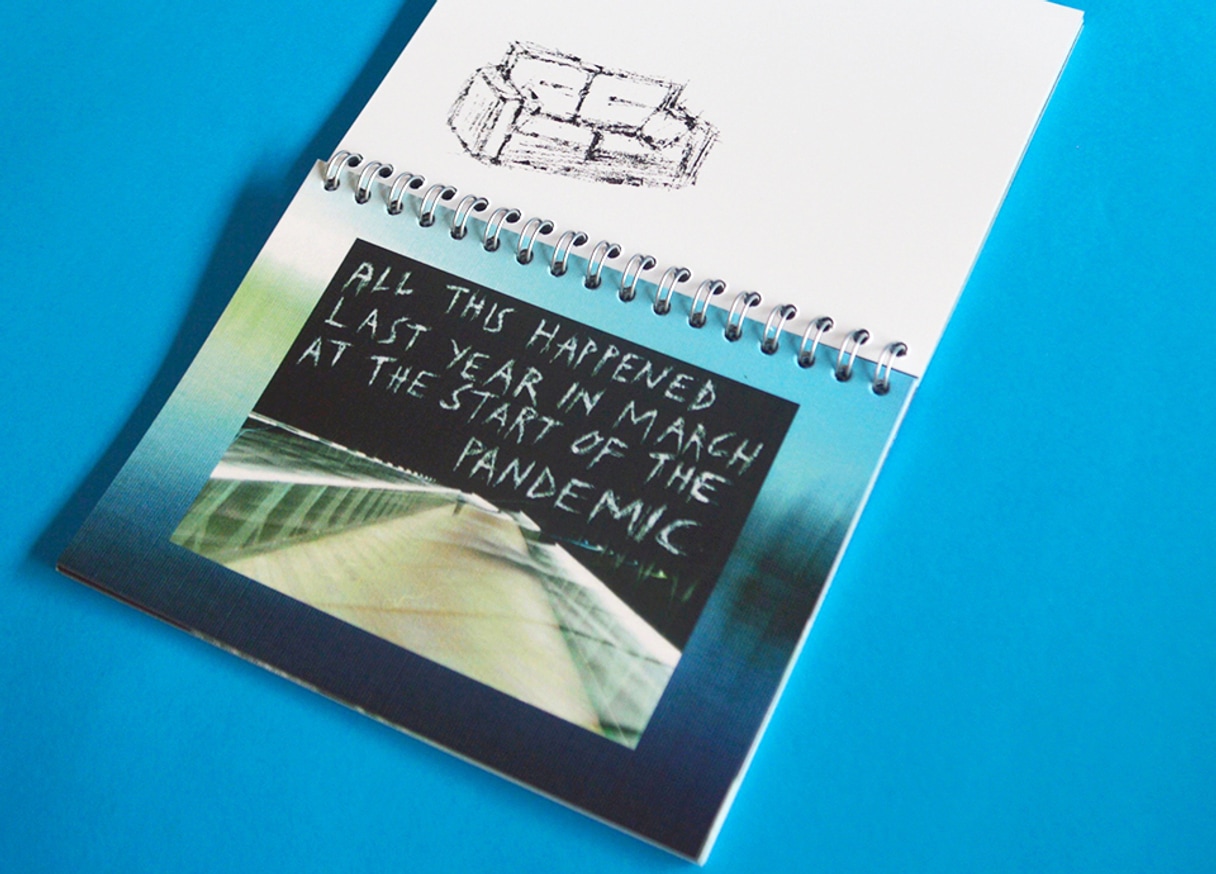 ALL THIS HAPPENED
LAST YEAR IN MARCH
AT THE START OF THE
PANDEMIC